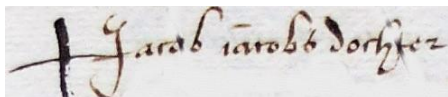 Jacob iacobs dochter